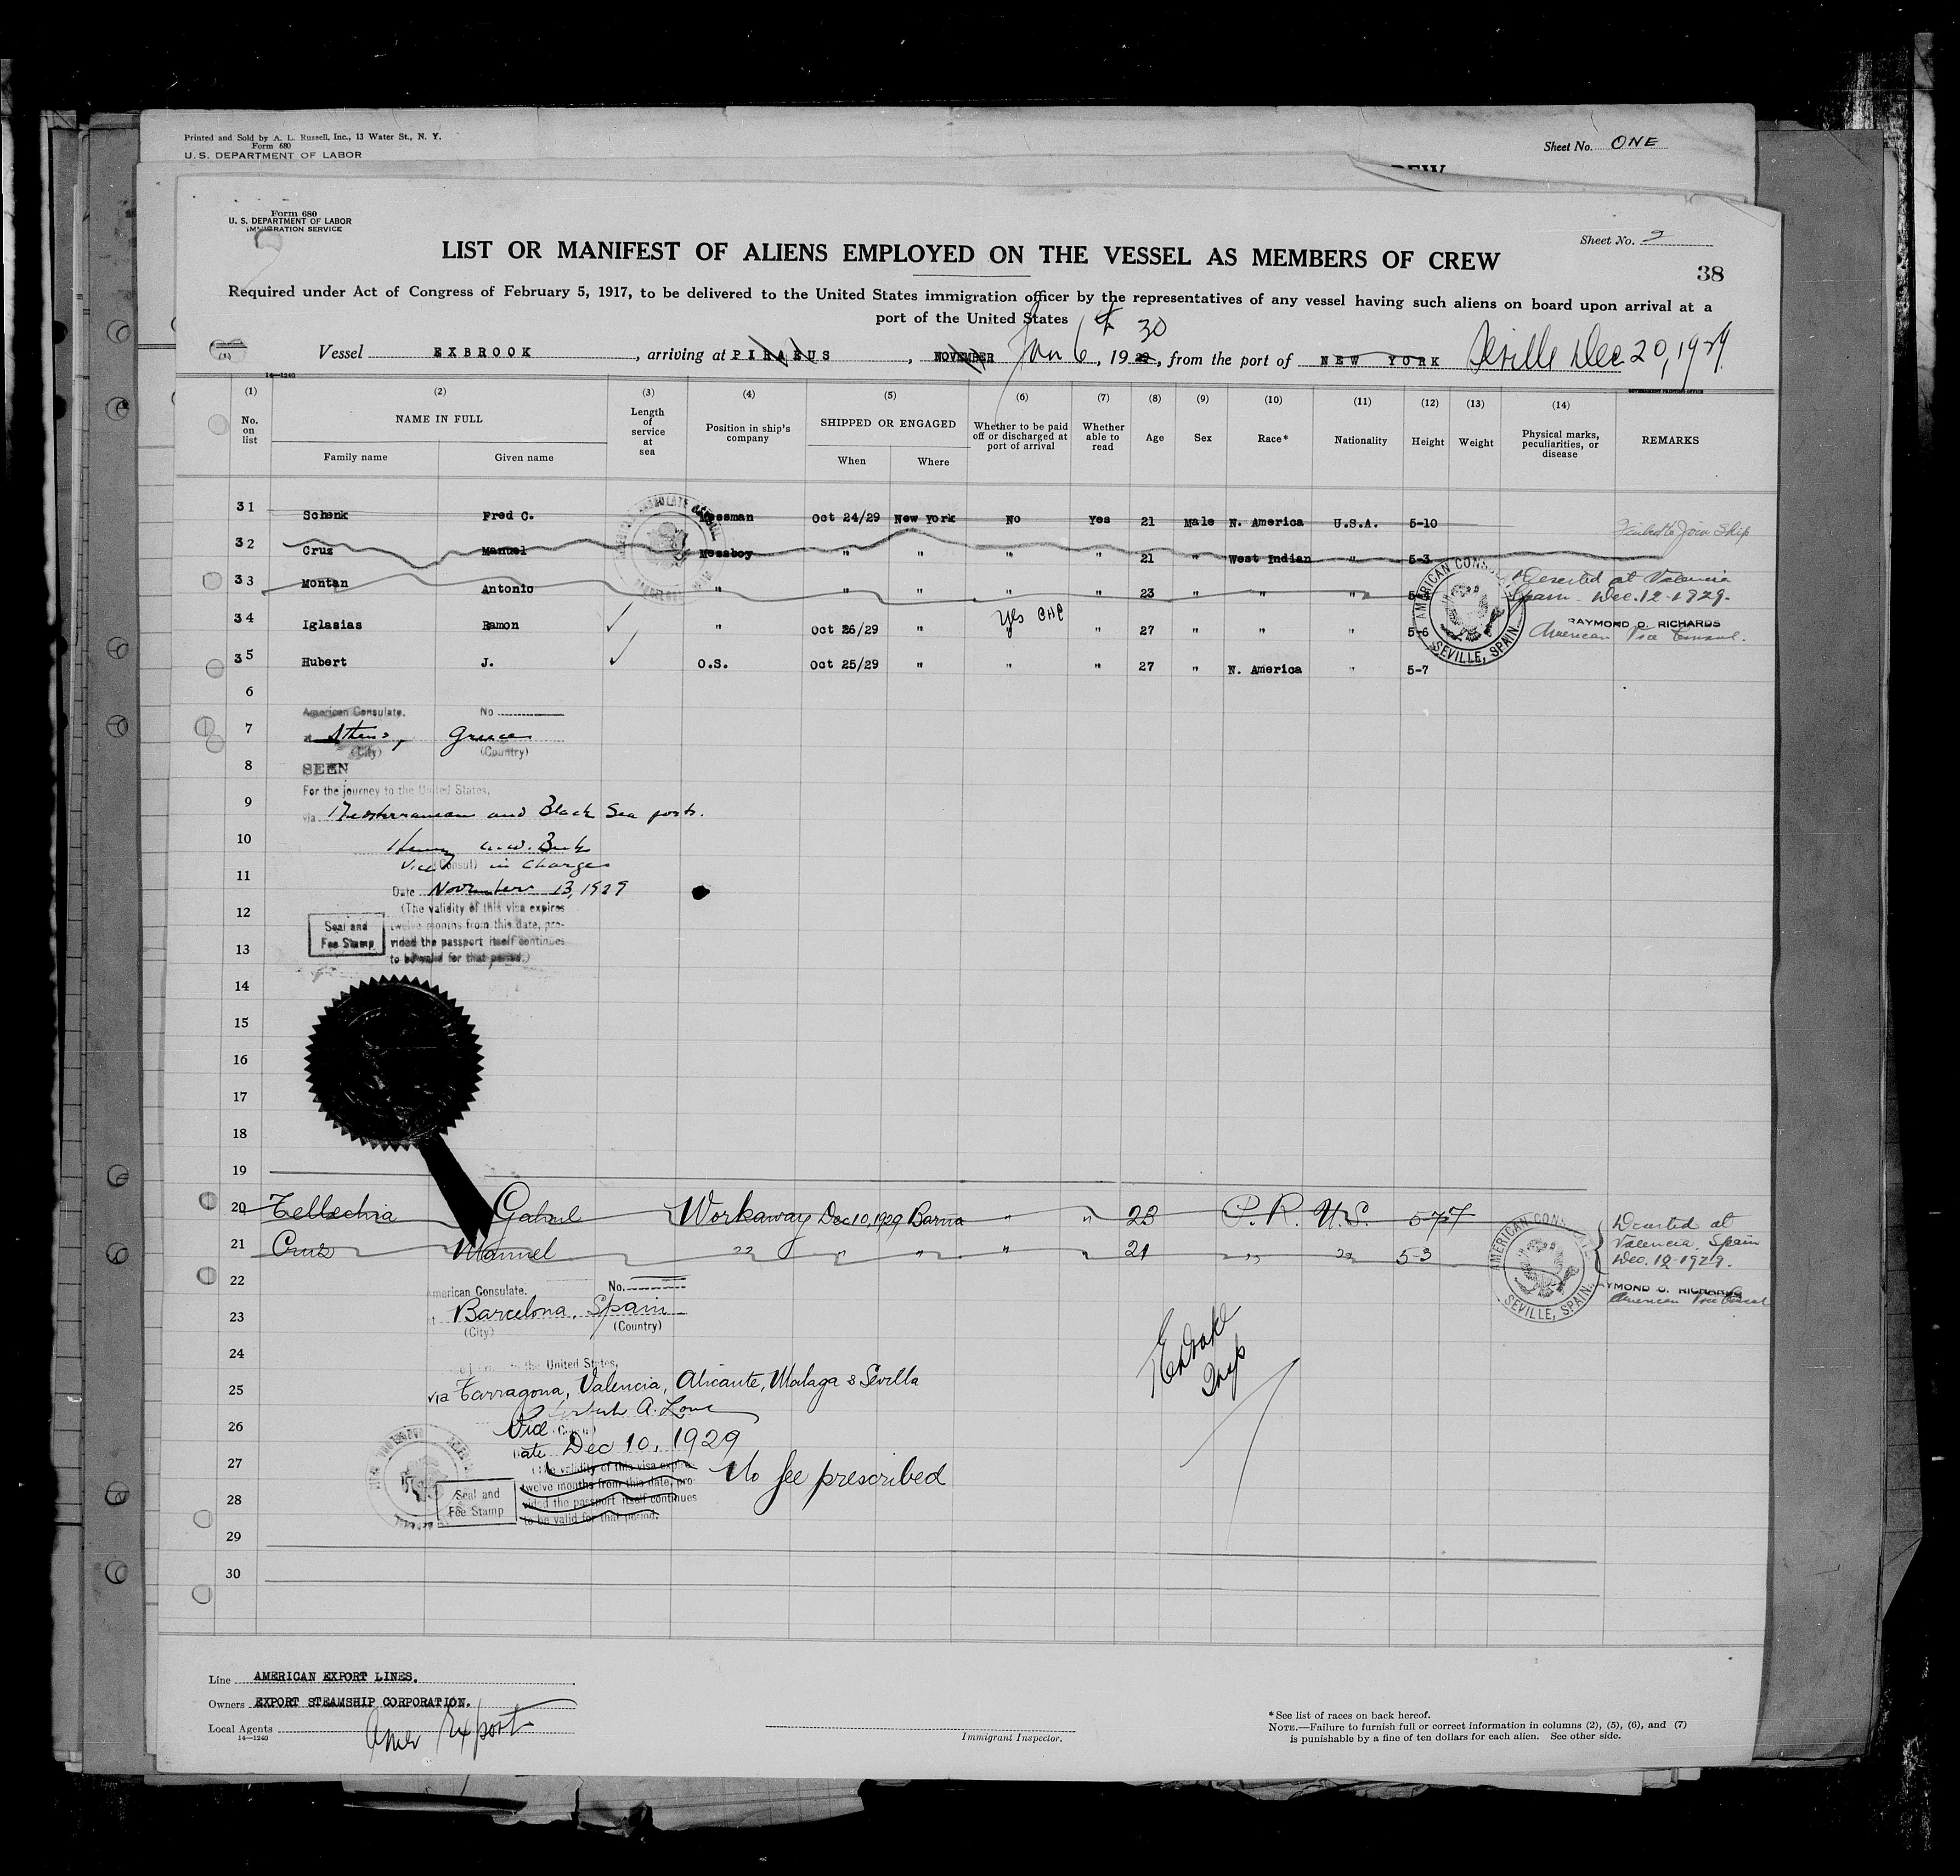 Printed and Sold by A. L. Russell, Inc., 13 Water St., N. Y.
Form 680
U. S. DEPARTMENT OF LABOR
Sheet No. ONE
Form 680
U. S. DEPARTMENT OF LABOR
IMMIGRATION SERVICE
Sheet No. 2
LIST OR MANIFEST OF ALIENS EMPLOYED ON THE VESSEL AS MEMBERS OF CREW
38
Required under Act of Congress of February 5, 1917, to be delivered to the United States immigration officer by the representatives of any vessel having such aliens on board upon arrival at a
port of the United States
Vessel EXBROOK, arriving at PIRAEUS, NOVEMBER Jan 6th, 1929 30, from the port of NEW YORK Seville Dec 20, 1929
14-1240
GOVERNMENT PRINTING OFFICE
(1) (2) (3) (4) (5) (6) (7) (8) (9) (10) (11) (12) (13) (14)
No. on list NAME IN FULL Family name Given name Length of service at sea Position in ship's company SHIPPED OR ENGAGED When Where Whether to be paid off or discharged at port of arrival Whether able to read Age Sex Race* Nationality Height Weight Physical marks, peculiarities, or disease REMARKS
31 Schenk Fred C. Messman Oct 24/29 New York No Yes 21 Male N. America U.S.A. 5-10 Failed to Join Ship
32 Cruz Manuel Messboy " " " 21 West Indian " 5-3
33 Montan Antonio " " " " 23 " " " Deserted at Valencia
Spain Dec. 12-1929.
34 Iglasias Ramon " Oct 26/29 Yes " 27 " " " 5-6 RAYMOND O. RICHARDS
American Vice Consul.
35 Hubert J. O.S. Oct 25/29 " " " 27 " N. America " 5-7
AMERICAN CONSULATE
SEVILLE, SPAIN.
6
American Consulate. No
7 at Athens, Greece
(City) (Country)
8 SEEN
For the journey to the United States,
9 via Mediterranean and Black Sea ports.
10 Henry
Vice (Consul) in Charge
11 Date November 13, 1929
12 (The validity of this visa expires
Seal and twelve months from this date, pro-
13 Fee Stamp vided the passport itself continues
to be valid for that period.)
14
15
16
17
18
19
20 Tellechia Gabriel Workaway Dec 10, 1929 Barna " " 23 P.R. U.S. 5-7 Deserted at
Valencia, Spain
21 Cruz Manuel " " " " " 21 " " 5-3 Dec. 12-1929.
RAYMOND O. RICHARDS
American Vice Consul
AMERICAN CONSULATE
SEVILLE, SPAIN.
22
American Consulate. No.
23 at Barcelona, Spain
(City) (Country)
24
to the United States,
25 via Tarragona, Valencia, Alicante, Malaga & Sevilla
A. Lowe
26 Vice Consul
Date Dec 10, 1929
27 (The validity of this visa expires No fee prescribed
twelve months from this date, pro-
28 Seal and Fee Stamp vided the passport itself continues
to be valid for that period.
Insp
29
30
Line AMERICAN EXPORT LINES.
Owners EXPORT STEAMSHIP CORPORATION.
Local Agents Amer Export
14-1240
Immigrant Inspector.
*See list of races on back hereof.
NOTE.—Failure to furnish full or correct information in columns (2), (5), (6), and (7)
is punishable by a fine of ten dollars for each alien. See other side.